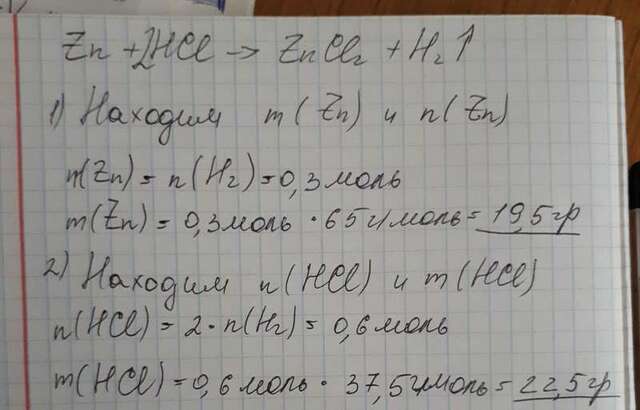 Zn + 2HCl → ZnCl₂ + H₂↑
1) Находим m(Zn) и n(Zn)
m(Zn) = n(H₂) = 0,3 моль
m(Zn) = 0,3 моль · 65 г/моль = 19,5 гр
2) Находим n(HCl) и m(HCl)
n(HCl) = 2 · n(H₂) = 0,6 моль
m(HCl) = 0,6 моль · 37,5 г/моль = 22,5 гр